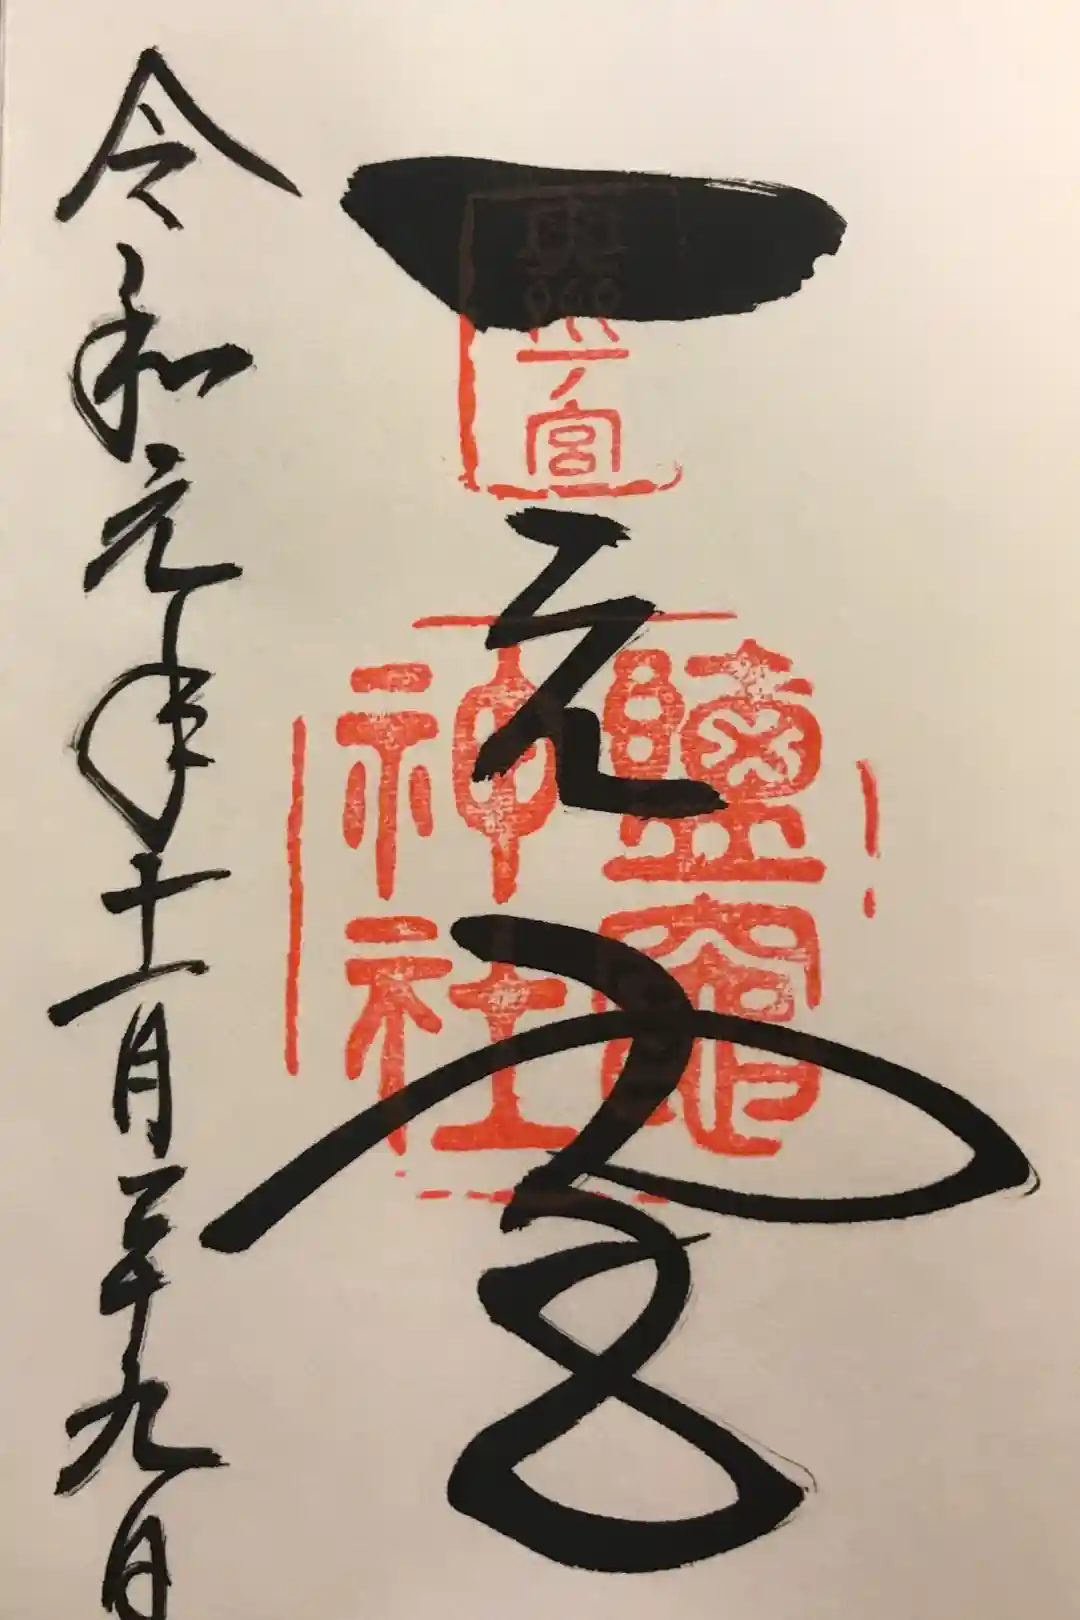 一之宮
奥州一ノ宮
鹽竈
神社
令和元年十一月二十九日